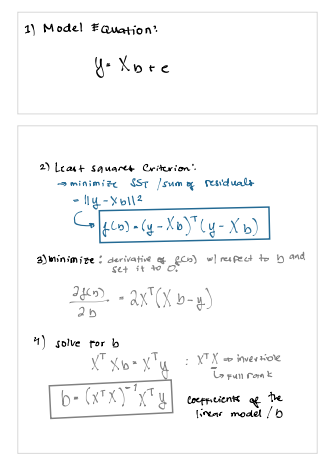 1) Model Equation:
y = Xb + e
2) Least squares Criterion:
→ minimize SST / sum of residuals
= ||y - Xb||²
f(b) = (y - Xb)ᵀ(y - Xb)
3) minimize: derivative of f(b) w/ respect to b and
set it to 0.
∂f(b) / ∂b = 2Xᵀ(Xb - y)
4) solve for b
XᵀXb = Xᵀy : XᵀX ⇒ invertible
↳ full rank
b = (XᵀX)⁻¹Xᵀy coefficients of the
linear model / b